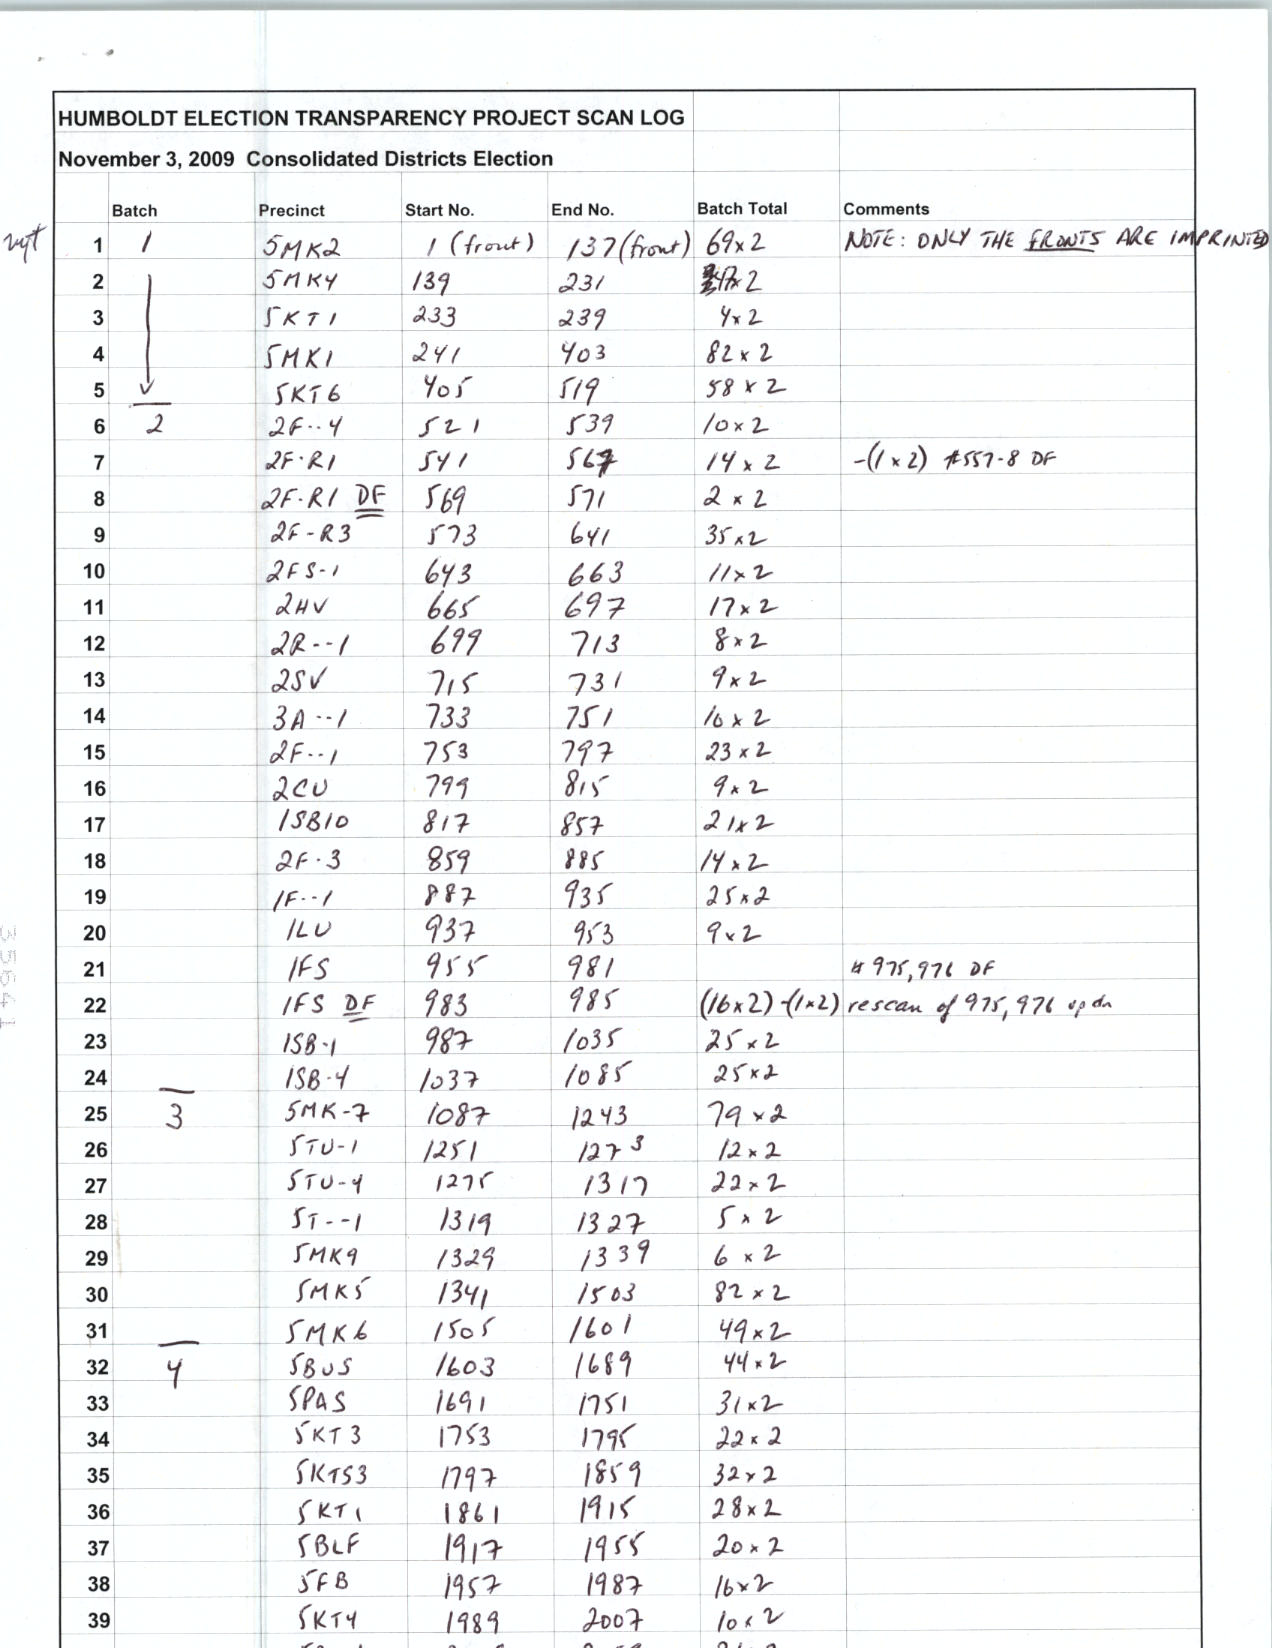 HUMBOLDT ELECTION TRANSPARENCY PROJECT SCAN LOG
November 3, 2009 Consolidated Districts Election
Batch Precinct Start No. End No. Batch Total Comments
1 1 5MK2 1 (front) 137 (front) 69x2 NOTE: ONLY THE FRONTS ARE IMPRINTED
2 5MK4 139 231 x2
3 5KT1 233 239 4x2
4 5MK1 241 403 82x2
5 5KT6 405 519 58x2
6 2 2F--4 521 539 10x2
7 2F-R1 541 567 14x2 -(1x2) #557-8 DF
8 2F-R1 DF 569 571 2x2
9 2F-R3 573 641 35x2
10 2FS-1 643 663 11x2
11 2HV 665 697 17x2
12 2R--1 699 713 8x2
13 2SV 715 731 9x2
14 3A--1 733 751 10x2
15 2F--1 753 797 23x2
16 2CU 799 815 9x2
17 1SB10 817 857 21x2
18 2F-3 859 885 14x2
19 1F--1 887 935 25x2
20 1LU 937 953 9x2
21 1FS 955 981 # 975,976 DF
22 1FS DF 983 985 (16x2)-(1x2) rescan of 975,976 up dn
23 1SB-1 987 1035 25x2
24 1SB-4 1037 1085 25x2
25 3 5MK-7 1087 1243 79x2
26 5TU-1 1251 1273 12x2
27 5TU-4 1275 1317 22x2
28 5T--1 1319 1327 5x2
29 5MK9 1329 1339 6x2
30 5MK5 1341 1503 82x2
31 5MK6 1505 1601 49x2
32 4 5BUS 1603 1689 44x2
33 5PAS 1691 1751 31x2
34 5KT3 1753 1795 22x2
35 5KTS3 1797 1859 32x2
36 5KT1 1861 1915 28x2
37 5BLF 1917 1955 20x2
38 5FB 1957 1987 16x2
39 5KT4 1989 2007 10x2